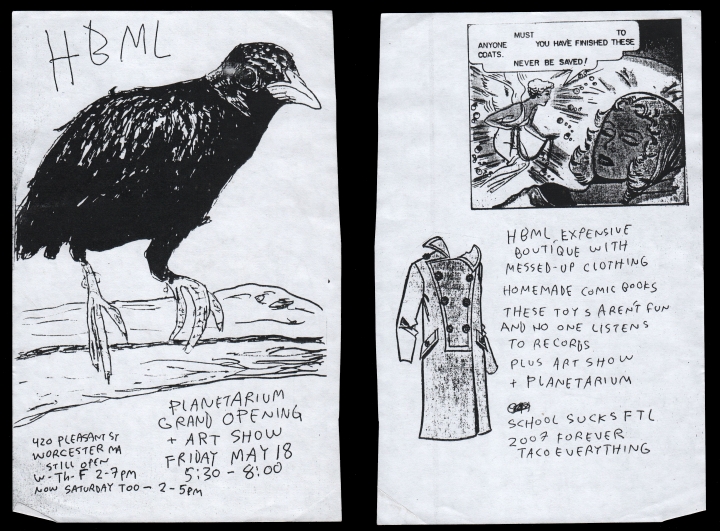 HBML
PLANETARIUM
GRAND OPENING
+ ART SHOW
FRIDAY MAY 18
5:30 - 8:00
420 PLEASANT ST
WORCESTER MA
STILL OPEN
W-Th-F 2-7pm
NOW SATURDAY TOO - 2-5pm
MUST TO
ANYONE YOU HAVE FINISHED THESE
COATS.
NEVER BE SAVED!
HBML, EXPENSIVE
BOUTIQUE WITH
MESSED-UP CLOTHING
HOMEMADE COMIC BOOKS
THESE TOYS AREN'T FUN
AND NO ONE LISTENS
TO RECORDS
PLUS ART SHOW
+ PLANETARIUM
SCHOOL SUCKS FTL
2007 FOREVER
TACO EVERYTHING